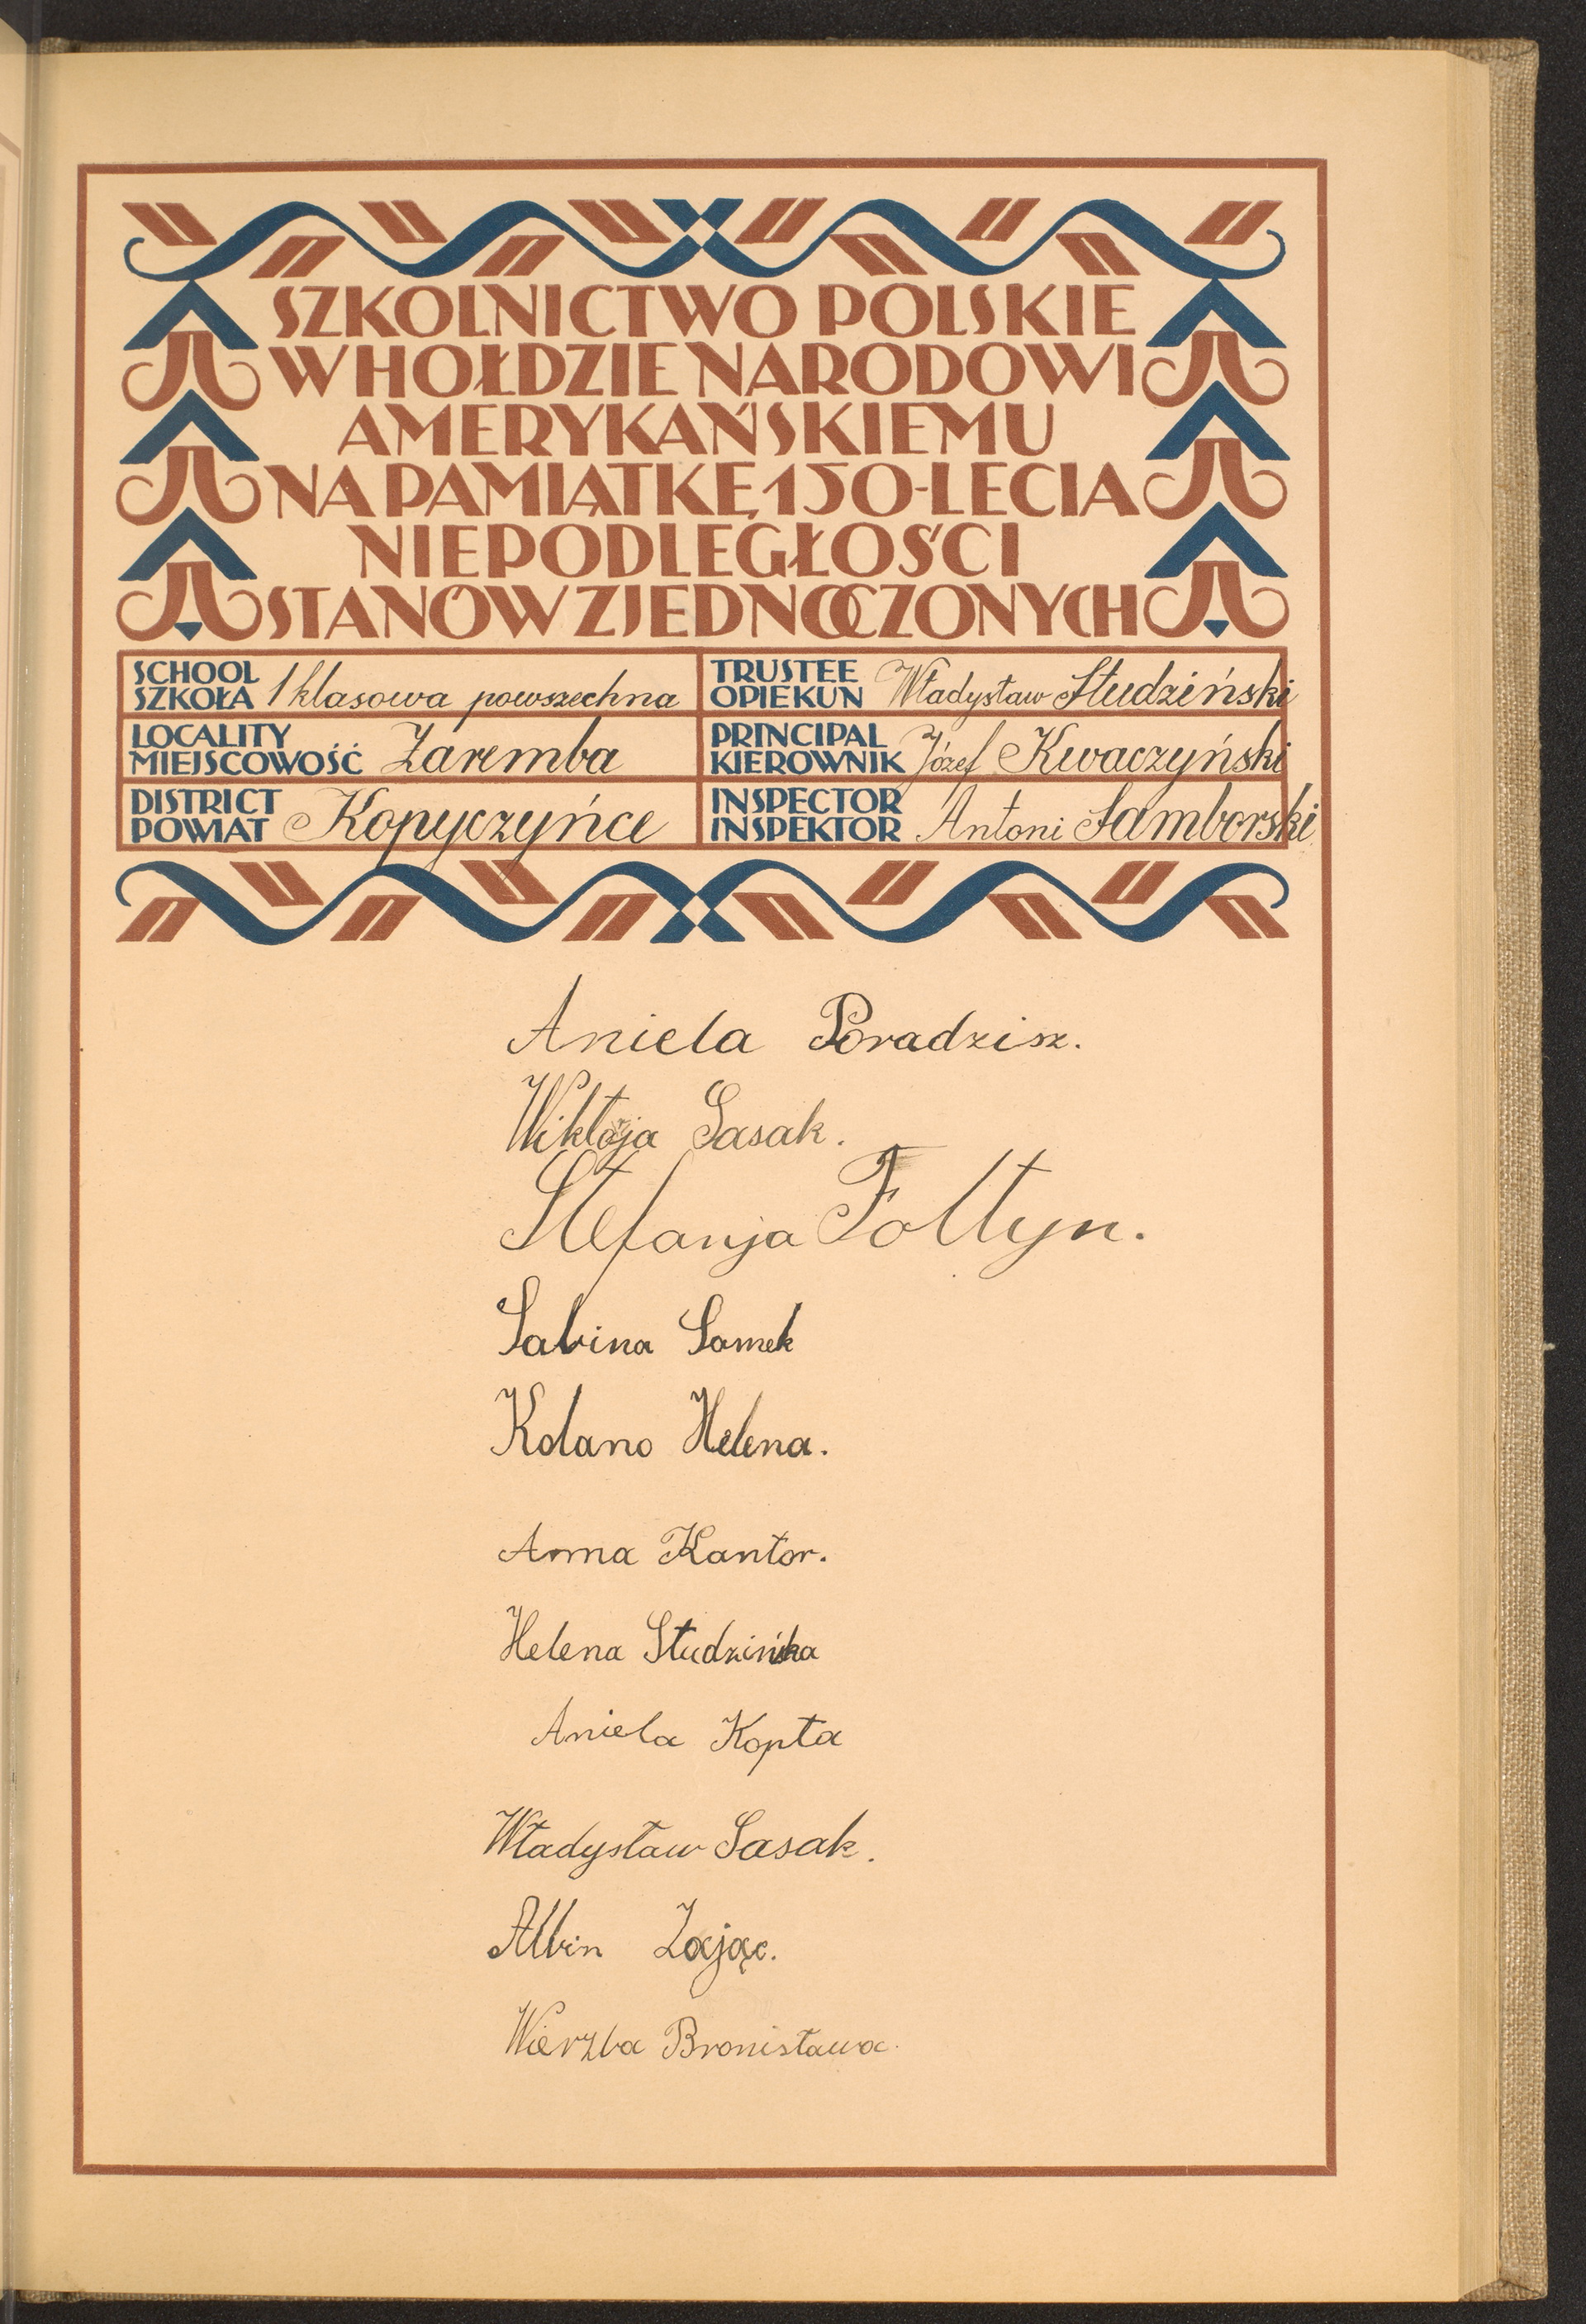 SZKOLNICTWO POLSKIE
W HOŁDZIE NARODOWI
AMERYKAŃSKIEMU
NA PAMIĄTKĘ 150-LECIA
NIEPODLEGŁOŚCI
STANÓW ZJEDNOCZONYCH
SCHOOL
SZKOŁA 1 klasowa powszechna
TRUSTEE
OPIEKUN Władysław Studziński
LOCALITY
MIEJSCOWOŚĆ Zaremba
PRINCIPAL
KIEROWNIK Józef Kwaczyński
DISTRICT
POWIAT Kopyczyńce
INSPECTOR
INSPEKTOR Antoni Samborski
Aniela Poradzisz.
Wiktoja Sasak.
Stefanja Foltyn.
Sabina Samek
Kolano Helena.
Anna Kantor.
Helena Studzińska
Aniela Kopta
Władysław Sasak.
Albin Zając.
Wierzba Bronisława.